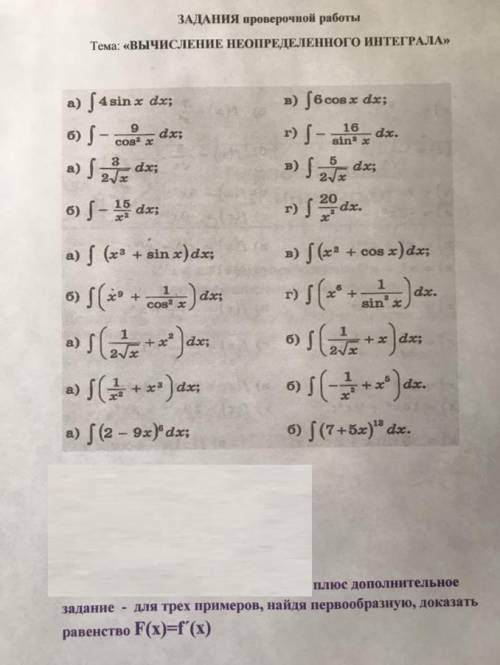 ЗАДАНИЯ проверочной работы
Тема: «ВЫЧИСЛЕНИЕ НЕОПРЕДЕЛЕННОГО ИНТЕГРАЛА»
а) ∫ 4 sin x dx; в) ∫ 6 cos x dx;
б) ∫ − 9/cos² x dx; г) ∫ − 16/sin² x dx.
а) ∫ 3/(2√x) dx; в) ∫ 5/(2√x) dx;
б) ∫ − 15/x² dx; г) ∫ 20/x² dx.
а) ∫ (x³ + sin x) dx; в) ∫ (x² + cos x) dx;
б) ∫ (x⁹ + 1/cos² x) dx; г) ∫ (x⁶ + 1/sin² x) dx.
а) ∫ (1/(2√x) + x²) dx; б) ∫ (1/(2√x) + x) dx;
а) ∫ (1/x² + x³) dx; б) ∫ (−1/x² + x⁵) dx.
а) ∫ (2 − 9x)⁶ dx; б) ∫ (7 + 5x)¹³ dx.
плюс дополнительное
задание - для трех примеров, найдя первообразную, доказать
равенство F(x)=f´(x)